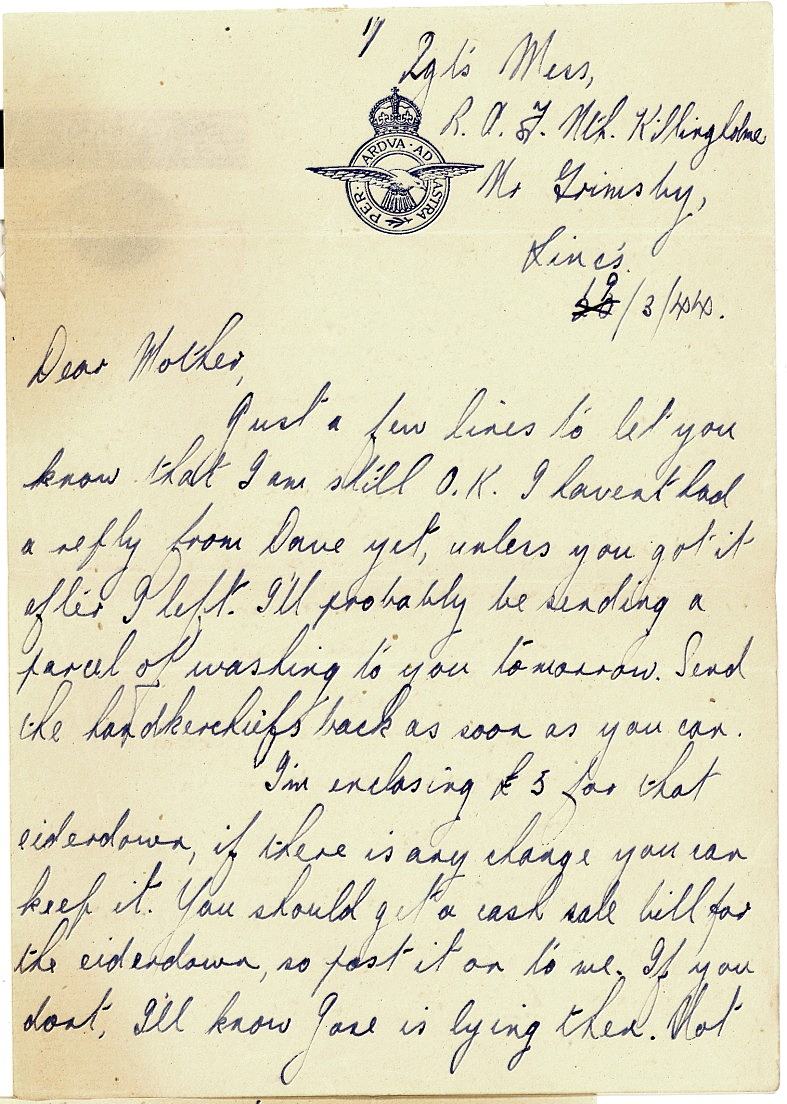 1/
Sgt's Mess,
R. A. F. Nth. Killingholme
Nr Grimsby,
Lincs.
PER · ARDVA · AD ASTRA
/3/44.
Dear Mother,
Just a few lines to let you
know that I am still O.K. I havent had
a reply from Dave yet, unless you got it
after I left. I'll probably be sending a
parcel of washing to you tomorrow. Send
the handkerchiefs back as soon as you can.
I'm enclosing £3 for that
eiderdown, if there is any change you can
keep it. You should get a cash sale bill for
the eiderdown, so post it on to me. If you
dont, I'll know is lying then. Not